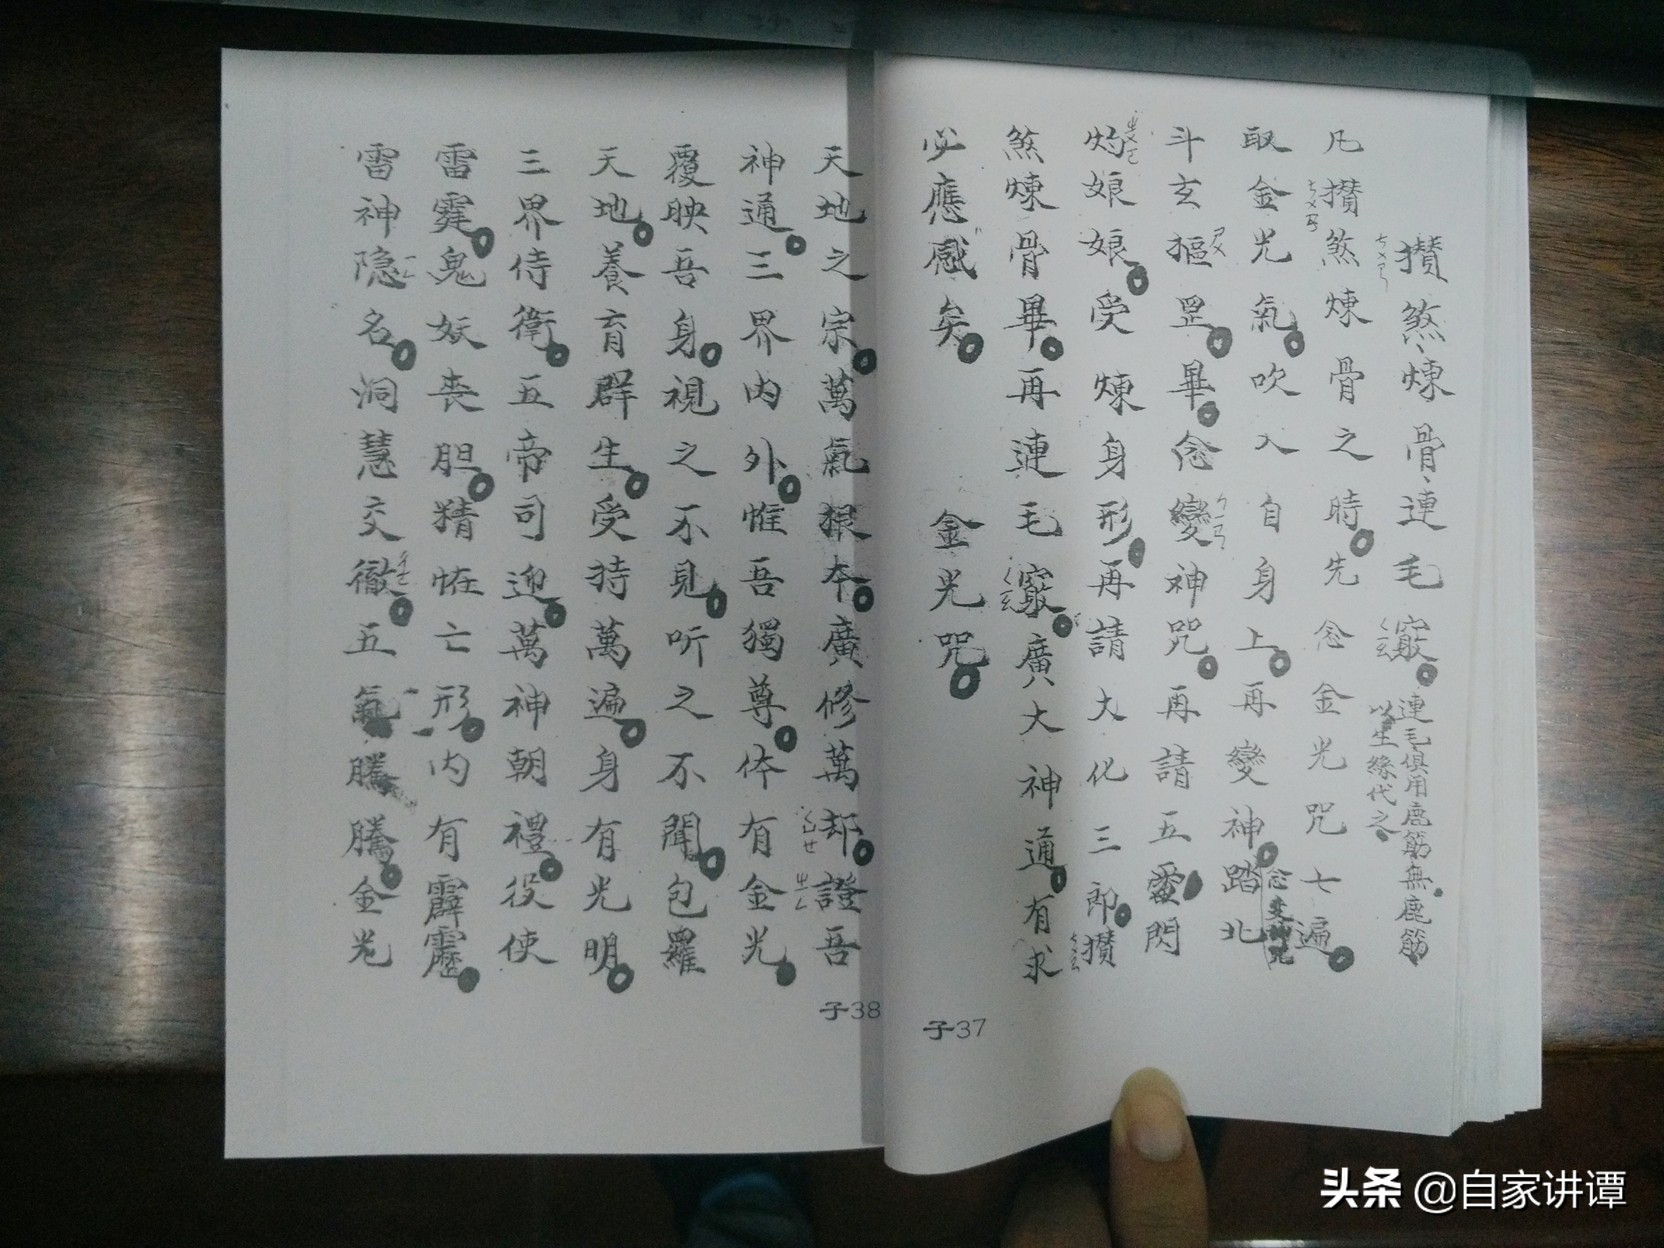 攢煞煉骨連毛竅
連毛俱用鹿筋無鹿筋
以生緣代之
凡攢煞煉骨之時先念金光咒七遍
取金光氣吹入自身上再變神踏北
念變神咒
斗玄摳罡畢念變神咒再請五靈閃
灼娘娘受煉身形再請大化三郎攢
煞煉骨畢再連毛竅廣大神通有求
必應感矣
金光咒
子37
天地之宗萬氣根本廣修萬却證吾
神通三界內外惟吾獨尊体有金光
覆映吾身視之不見听之不聞包羅
天地養育群生受持萬遍身有光明
三界侍衛五帝司迎萬神朝禮役使
雷霆鬼妖喪胆精恠亡形內有霹靂
雷神隐名洞慧交徹五氣騰騰金光
子38
头条 @自家讲谭